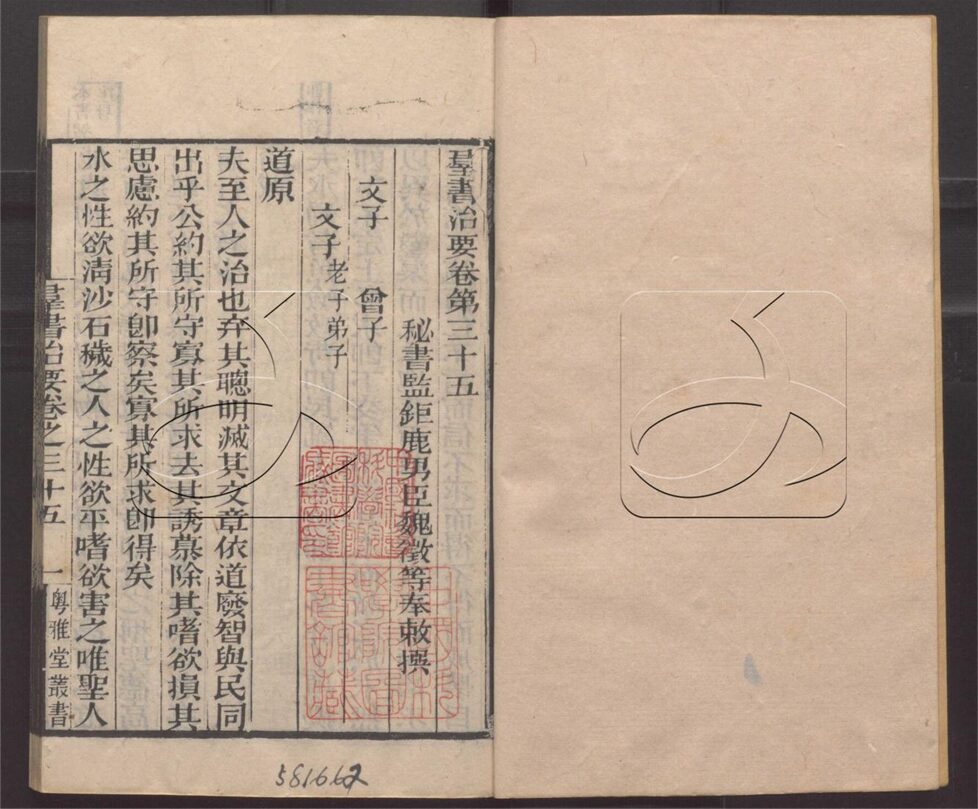 羣書治要卷第三十五
秘書監鉅鹿男臣魏徵等奉敕撰
文子　曾子
文子 老子弟子
道原
夫至人之治也弃其聰明滅其文章依道廢智與民同
出乎公約其所守寡其所求去其誘慕除其嗜欲損其
思慮約其所守卽察矣寡其所求卽得矣
水之性欲淸沙石穢之人之性欲平嗜欲害之唯聖人
羣書治要卷之三十五　一　粵雅堂叢書
581662